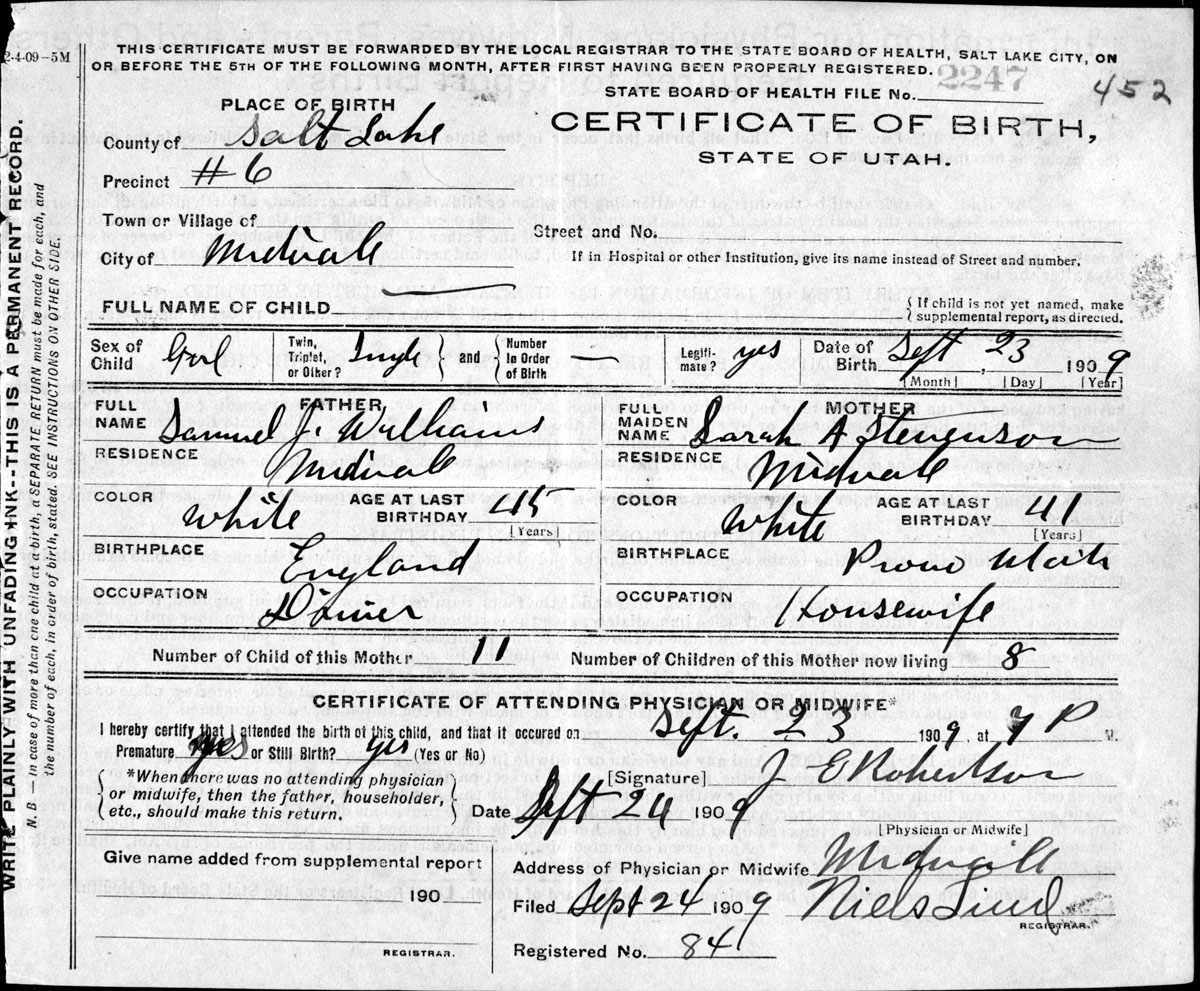 2-4-09-5M
THIS CERTIFICATE MUST BE FORWARDED BY THE LOCAL REGISTRAR TO THE STATE BOARD OF HEALTH, SALT LAKE CITY, ON
OR BEFORE THE 5TH OF THE FOLLOWING MONTH, AFTER FIRST HAVING BEEN PROPERLY REGISTERED.
STATE BOARD OF HEALTH FILE No. 2247
452
PLACE OF BIRTH
County of Salt Lake
Precinct #6
Town or Village of
City of Midvale
CERTIFICATE OF BIRTH,
STATE OF UTAH.
Street and No.
If in Hospital or other Institution, give its name instead of Street and number.
FULL NAME OF CHILD
[If child is not yet named, make
supplemental report, as directed.
Sex of Child Girl Twin, Triplet, or Other? Single and Number in Order of Birth — Legitimate? yes Date of Birth Sept 23, 1909
[Month] [Day] [Year]
FATHER
FULL NAME Samuel J. Williams
RESIDENCE Midvale
COLOR White AGE AT LAST BIRTHDAY 45
[Years]
BIRTHPLACE England
OCCUPATION
MOTHER
FULL MAIDEN NAME Sarah A Stevenson
RESIDENCE Midvale
COLOR White AGE AT LAST BIRTHDAY 41
[Years]
BIRTHPLACE Provo Utah
OCCUPATION Housewife
Number of Child of this Mother 11 Number of Children of this Mother now living 8
CERTIFICATE OF ATTENDING PHYSICIAN OR MIDWIFE*
I hereby certify that I attended the birth of this child, and that it occured on Sept. 23 1909, at 7 P M.
Premature yes or Still Birth? yes (Yes or No)
*When there was no attending physician
or midwife, then the father, householder,
etc., should make this return.
[Signature] J E Robertson
Date Sept 24 1909
[Physician or Midwife]
Give name added from supplemental report
190
REGISTRAR.
Address of Physician or Midwife
Filed Sept 24 1909 Niels Lind
REGISTRAR.
Registered No. 84
WRITE PLAINLY WITH UNFADING INK--THIS IS A PERMANENT RECORD.
N. B. — In case of more then one child at a birth, a SEPARATE RETURN must be made for each, and
the number of each, in order of birth, stated. SEE INSTRUCTIONS ON OTHER SIDE.